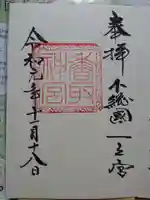 奉拝 下総國一之宮
香取神宮
令和元年十一月十八日